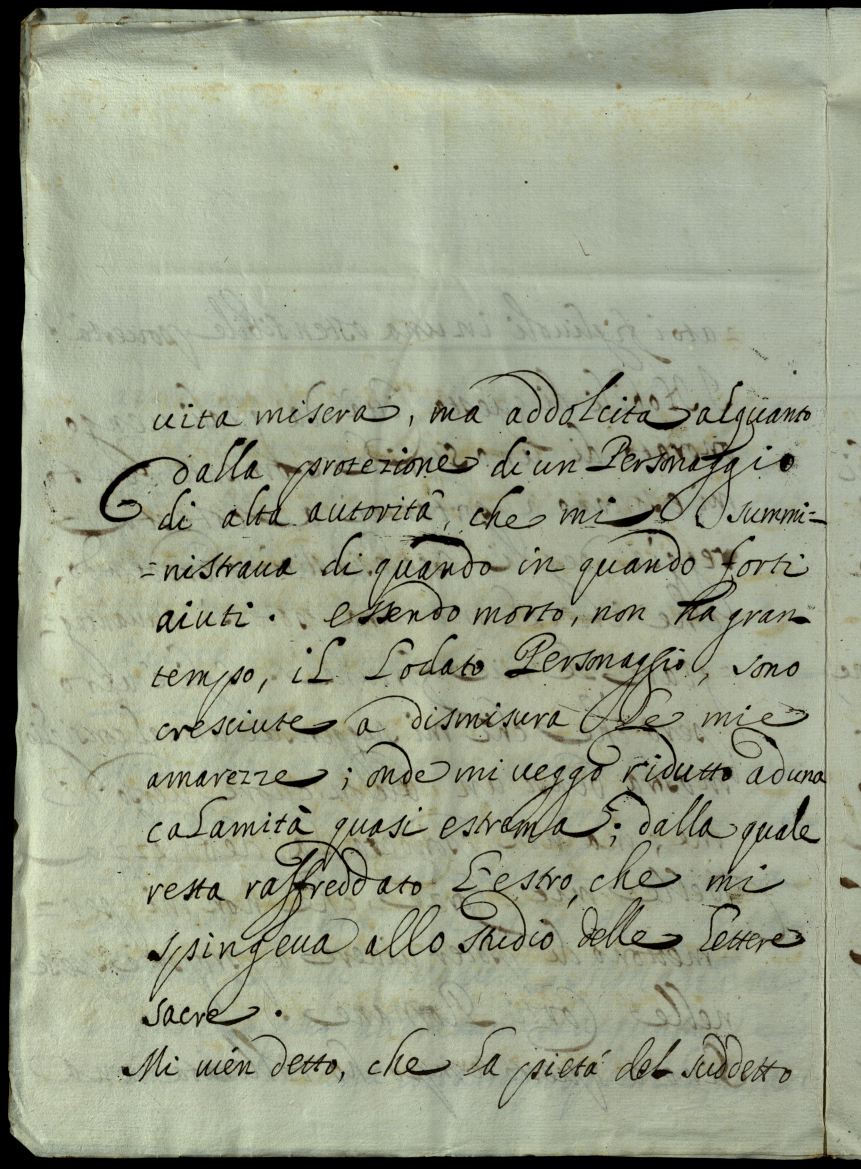 vita misera, ma addolcita alquanto
dalla protezione di un Personaggio
di alta autorità, che mi summi=
=nistrava di quando in quando forti
aiuti. essendo morto, non ha gran
tempo, il lodato Personaggio, sono
cresciute a dismisura le mie
amarezze; onde mi veggo ridutto ad una
calamità quasi estrema; dalla quale
resta raffreddato l'estro, che mi
spingeva allo studio delle lettere
sacre.
Mi vien detto, che la pietà del suddetto